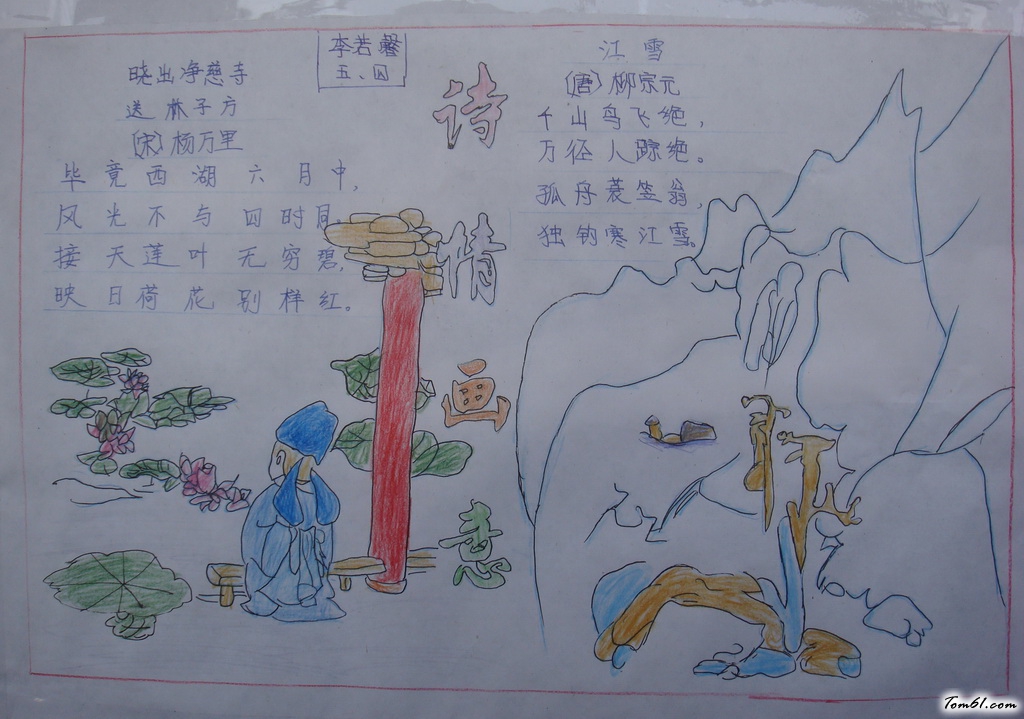 晓出净慈寺
送林子方
(宋)杨万里
毕竟西湖六月中,
风光不与四时同
接天莲叶无穷碧,
映日荷花别样红。
李若馨
五、四
诗
情
画
意
江雪
(唐)柳宗元
千山鸟飞绝,
万径人踪绝。
孤舟蓑笠翁,
独钓寒江雪。
Tom61.com